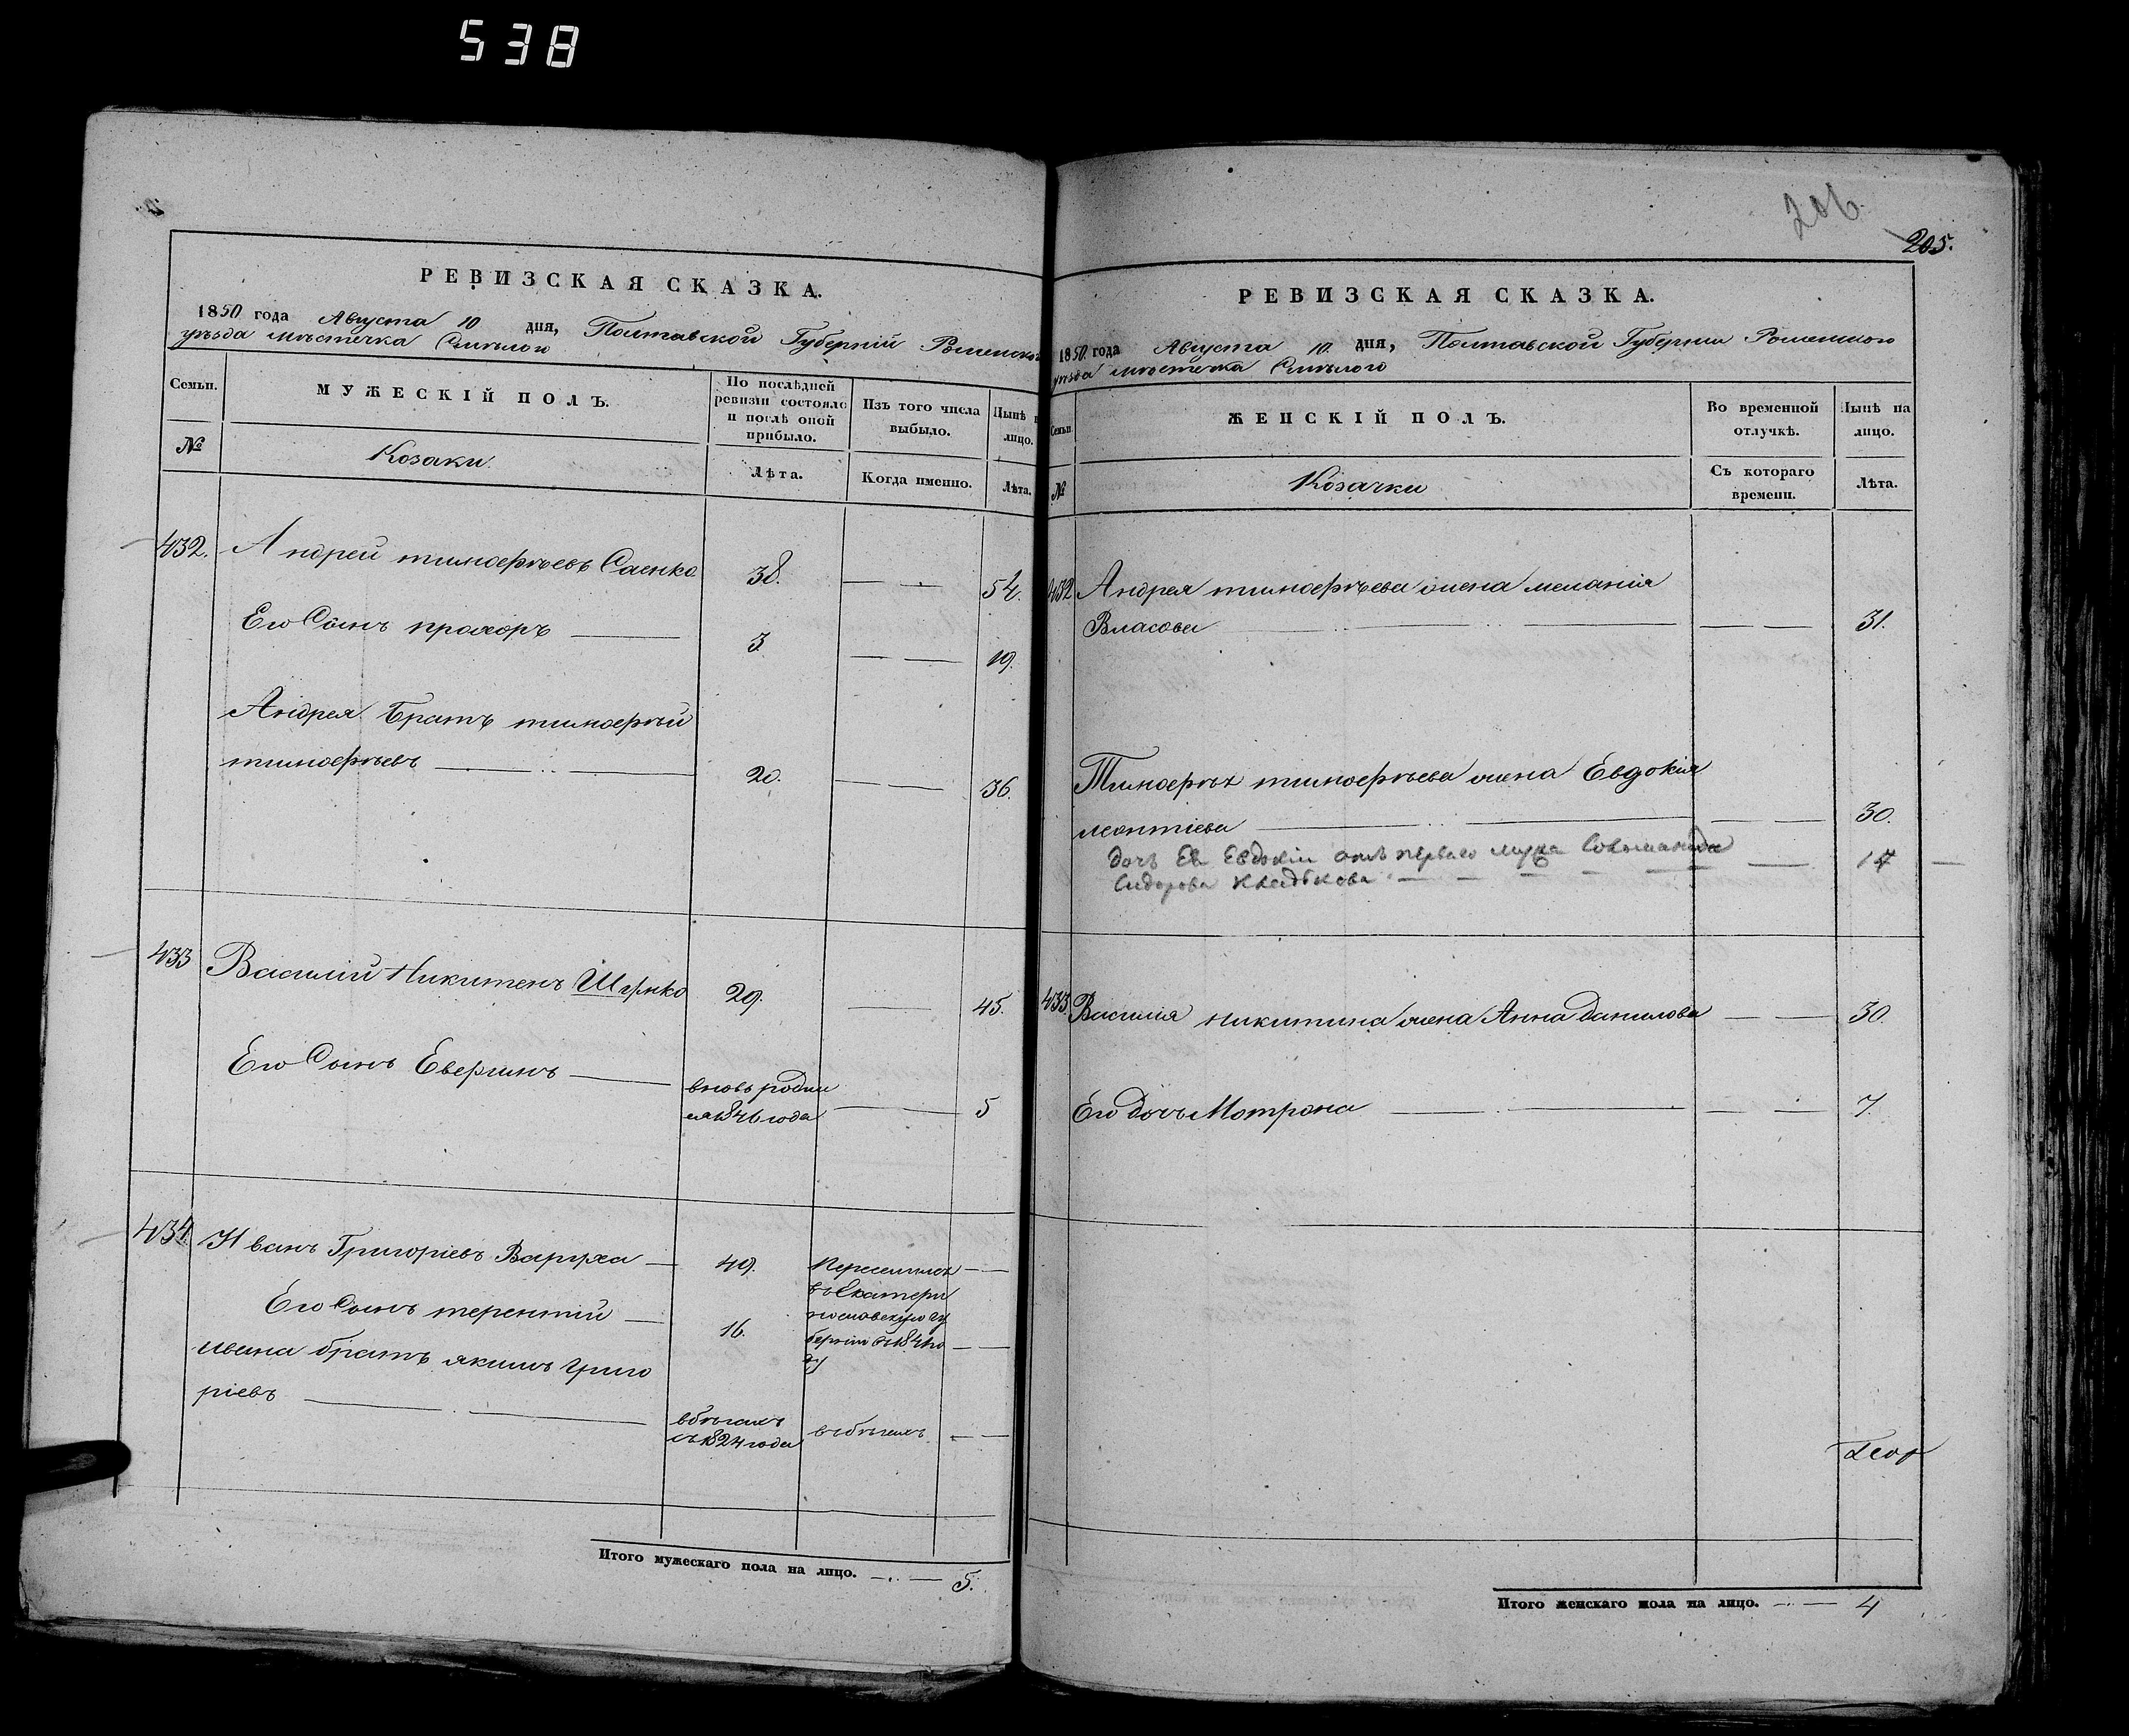 538
РЕВИЗСКАЯ СКАЗКА.
1850 года Августа 10 дня, Полтавской Губерніи Роменского
уѣзда мѣстечка Смѣлого
Семьи.
МУЖЕСКІЙ ПОЛЪ.
По послѣдней
ревизіи состояло
и послѣ оной
прибыло.
Изъ того числа
выбыло.
Нынѣ
лицо.
№
Козаки
Лѣта.
Когда именно.
Лѣта.
432. Андрей тимоѳѣевъ Саенко 38. 54.
Его Сынъ прохоръ 3 19.
Андрея Братъ тимоѳѣй
тимоѳѣевъ 20. 36.
433 Василій Никитенъ 29. 45.
Его Сынъ
вновь родил
ся 1846 года 5
434 Иванъ Григоріевъ 49. Переселился
Его Сынъ терентій 16. въ Екатери
нославскую гу
Ивана братъ якимъ Григо
ріевъ
въ бѣгахъ
съ 1824 года въ бѣгахъ
Итого мужескаго пола на лицо. 5.
206.
205.
РЕВИЗСКАЯ СКАЗКА.
1850 года Августа 10. дня, Полтавской Губерніи Роменского
уѣзда мѣстечка Смѣлого
Семьи.
ЖЕНСКІЙ ПОЛЪ.
Во временной
отлучкѣ.
Нынѣ на
лицо.
№
Козачки
Съ котораго
времени.
Лѣта.
432 Андрея тимоѳѣева жена меланія
Власова 31.
Тимоѳѣя тимоѳѣева жена Евдокія
леонтіева 30.
дочь Ев Евдокіи отъ перваго мужа
Сидорова 17
433. Василія никитина жена Анна данилова 30.
Его дочь Мотрона 7.
Итого женскаго пола на лицо. 4